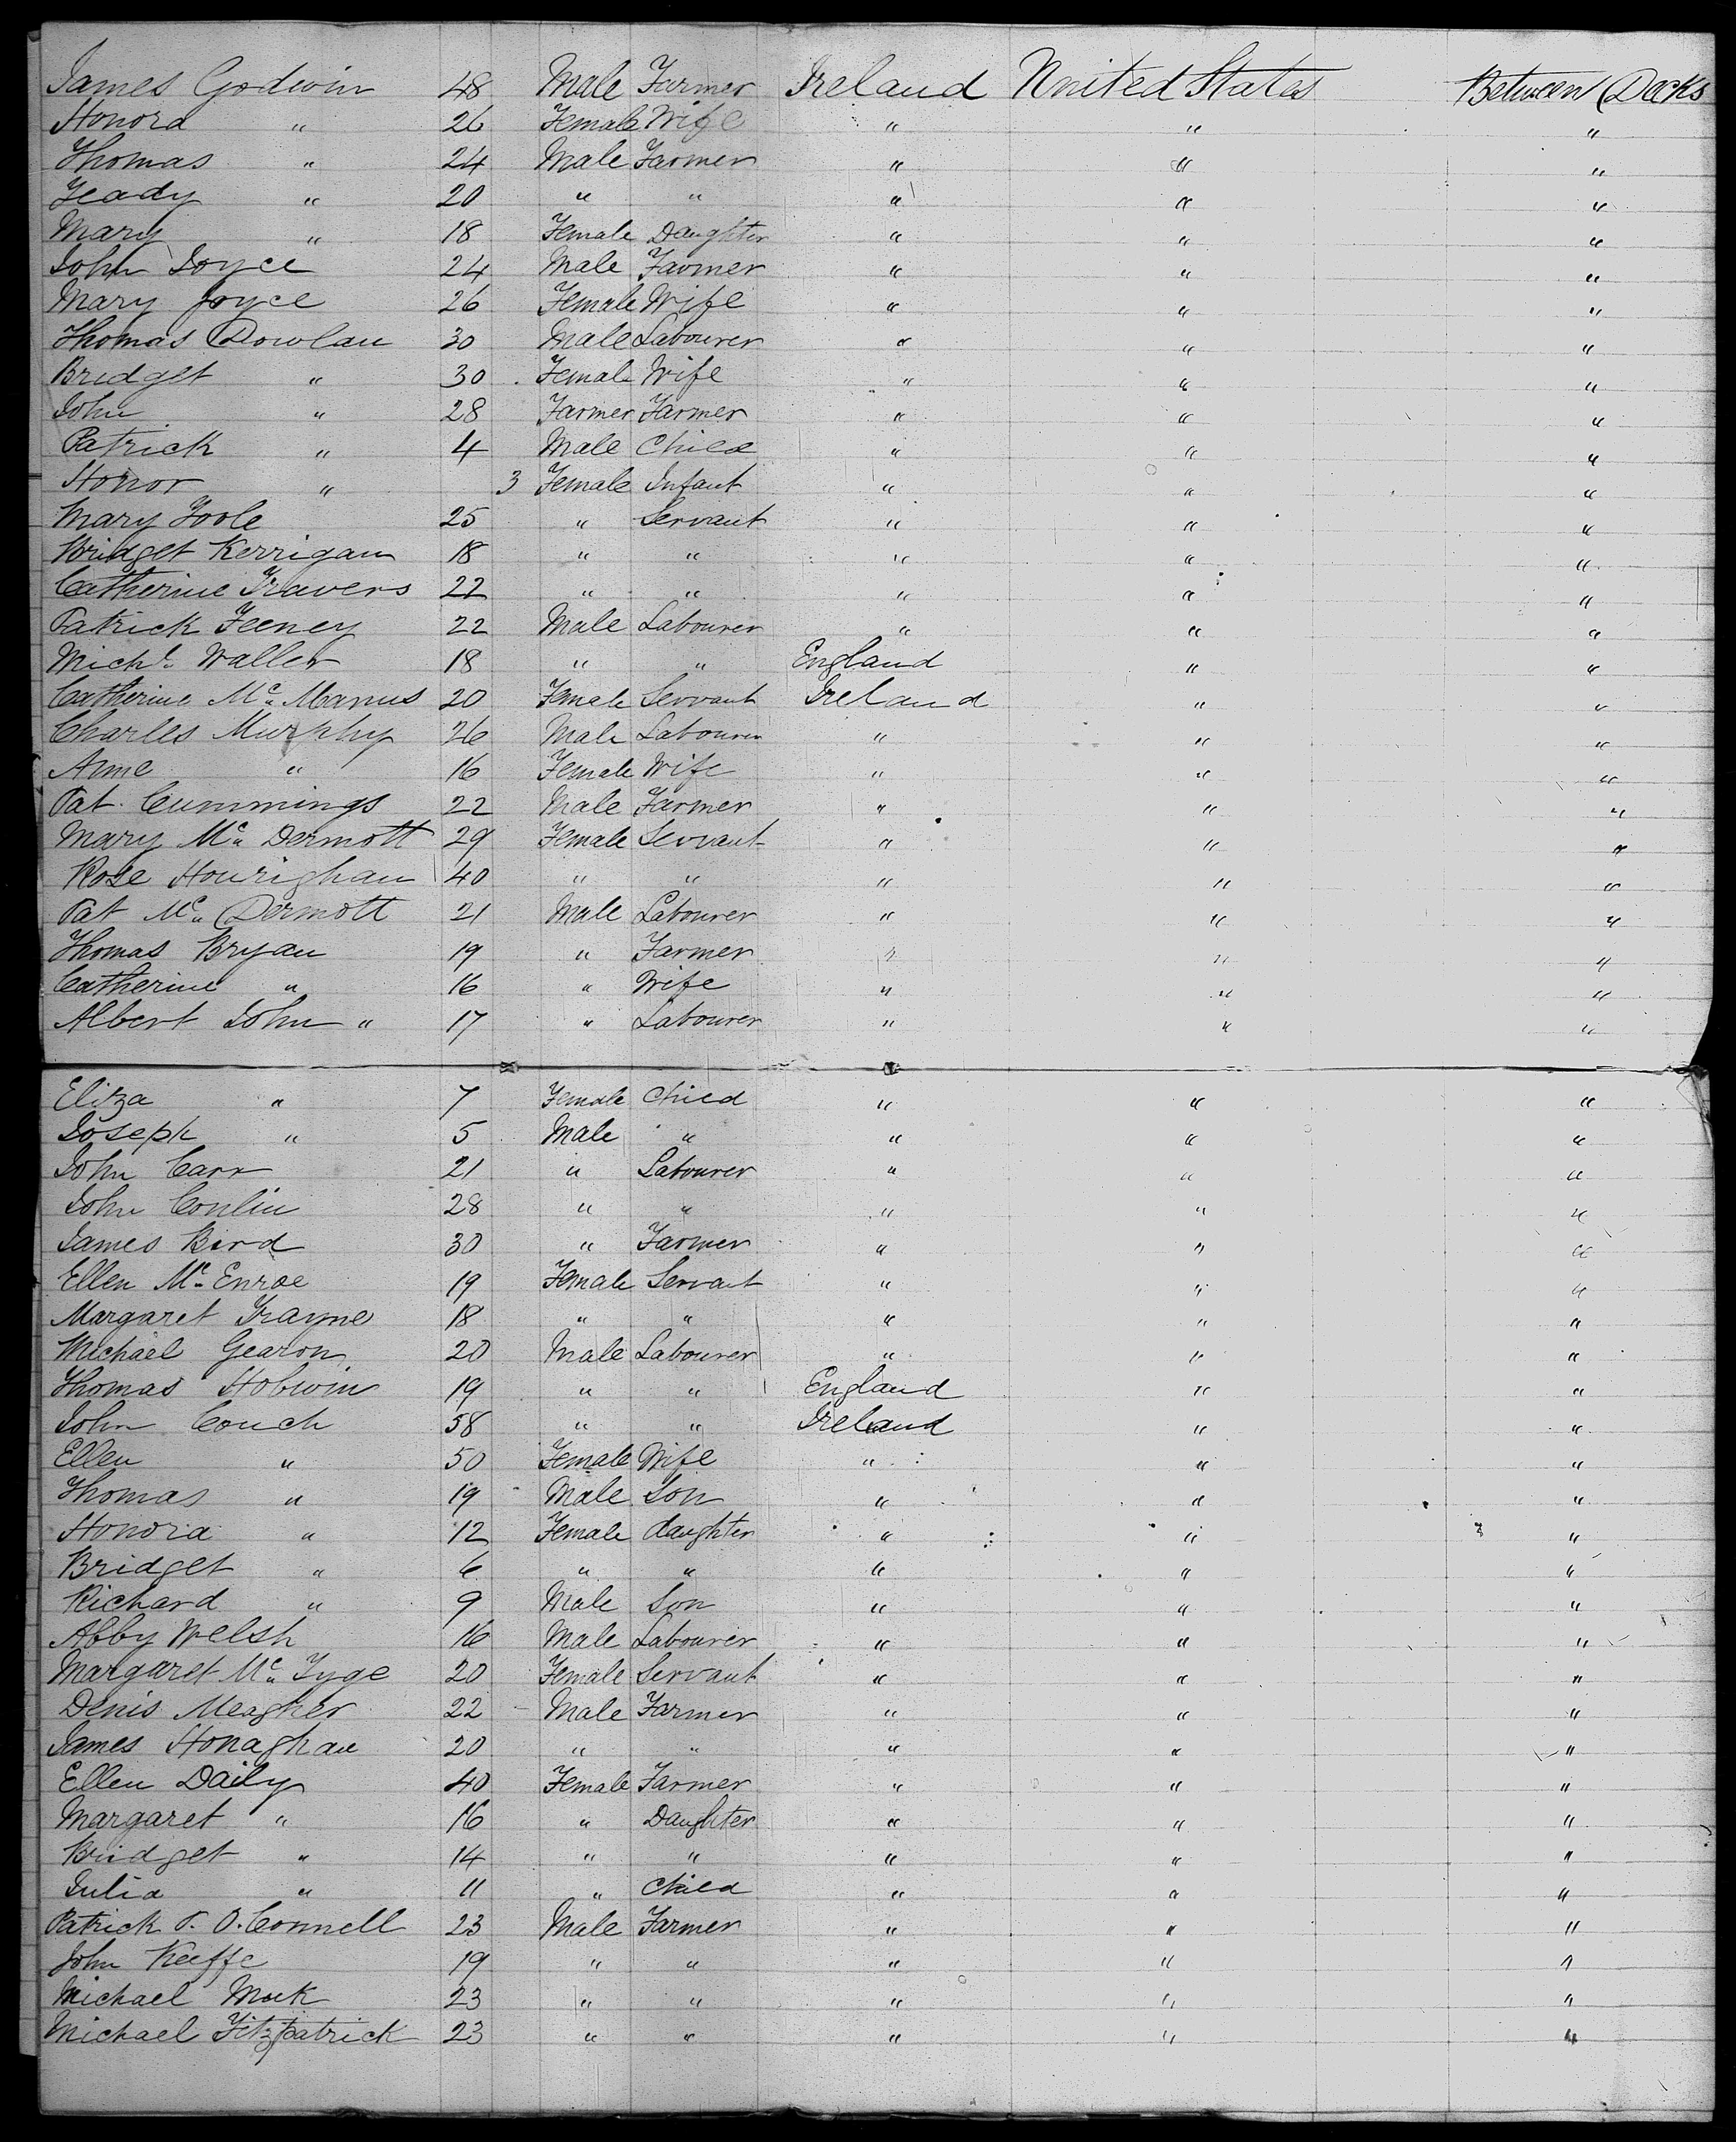 James Godwin 48 Male Farmer Ireland United States Between Decks
Honora " 26 Female Wife " " "
Thomas " 24 Male Farmer " " "
Teady " 20 " " " " "
Mary " 18 Female Daughter " " "
John Joyce 24 Male Farmer " " "
Mary Joyce 26 Female Wife " " "
Thomas Dowlan 30 Male Labourer " " "
Bridget " 30 Female Wife " " "
John " 28 Farmer Farmer " " "
Patrick " 4 Male Child " " "
Honor " 3 Female Infant " " "
Mary Toole 25 " Servant " " "
Bridget Kerrigan 18 " " " " "
Catherine Travers 22 " " " " "
Patrick Feeney 22 Male Labourer " " "
Michl. Waller 18 " " England " "
Catherine Mc Manus 20 Female Servant Ireland " "
Charles Murphy 26 Male Labourer " " "
Anne " 16 Female Wife " " "
Pat Cummings 22 Male Farmer " " "
Mary Mc Dermott 29 Female Servant " " "
Rose Hourighan 40 " " " " "
Pat Mc Dermott 21 Male Labourer " " "
Thomas Bryan 19 " Farmer " " "
Catherine " 16 " Wife " " "
Albert John " 17 " Labourer " " "
Eliza " 7 Female Child " " "
Joseph " 5 Male " " " "
John Carr 21 " Labourer " " "
John Conlin 28 " " " " "
James Bird 30 " Farmer " " "
Ellen Mc Enroe 19 Female Servant " " "
Margaret Trayne 18 " " " " "
Michael Gearon 20 Male Labourer " " "
Thomas Hobwin 19 " " England " "
John Couch 58 " " Ireland " "
Ellen " 50 Female Wife " " "
Thomas " 19 Male Son " " "
Honora " 12 Female daughter " " "
Bridget " 6 " " " " "
Richard " 9 Male Son " " "
Abby Welsh 16 Male Labourer " " "
Margaret Mc Tyge 20 Female Servant " " "
Denis Meagher 22 Male Farmer " " "
James Honaghan 20 " " " " "
Ellen Daily 40 Female Farmer " " "
Margaret " 16 " Daughter " " "
Bridget " 14 " " " " "
Julia " 11 " Child " " "
Patrick O. Connell 23 Male Farmer " " "
John Keeffe 19 " " " " "
Michael 23 " " " " "
Michael Fitzpatrick 23 " " " " "